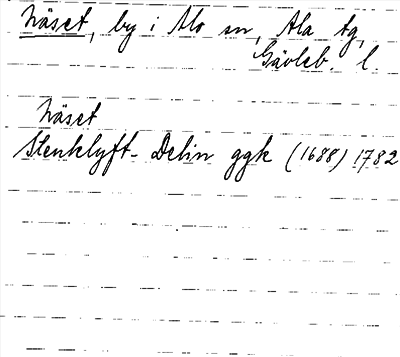 Näset, by i Mo sn, Ala tg,
Gävleb. l.
Näset
Stenklyft- Delin ggk (1688) 1782